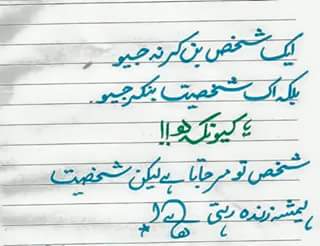 ایک شخص بن کر نہ جیو
بلکہ اک شخصیت بنکر جیو
کیونکہ !!
شخص تو مر جاتا ہے لیکن شخصیت
ہمیشہ زندہ رہتی ہے!